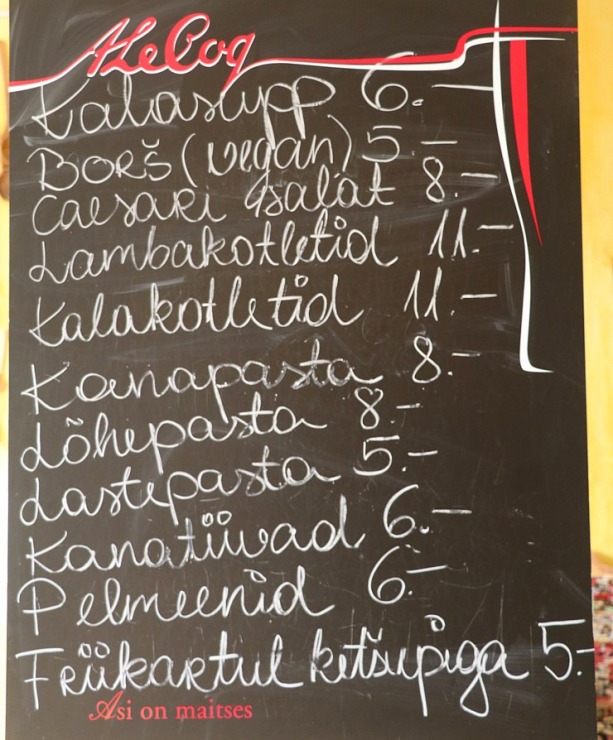 ALeCoq
Kalasupp 6.-
Borš (vegan) 5.-
Caesari salat 8.-
Lambakotletid 11.-
Kalakotletid 11.-
Kanapasta 8.-
Lõhepasta 8-
Lastepasta 5.-
Kanatiivad 6.-
Pelmeenid 6.-
Friikartul ketšupiga 5.-
Asi on maitses